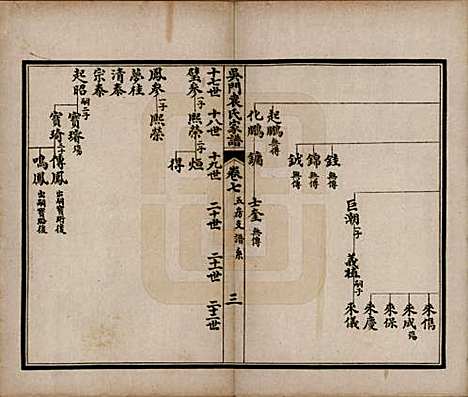 銈 無傳
錦 無傳
鉞 無傳
巨潮 一子
義植 嗣子
來儁
來成 殤
來保
來慶
來儀
起鵬 無傳
化鵬
鏞
士奎 無傳
吳門袁氏家譜
卷七
五房支譜系
三
十七世
十八世
十九世
二十世
二十一世
二十二世
璧參
熙榮 二子
烜
得
鳳參 一子
熙榮
夢柱
清泰
宗泰
起昭 嗣二子
寶𤩽 殤
寶琦 二子
傳鳳 出嗣寶賂後
鳴鳳 出嗣寶路後